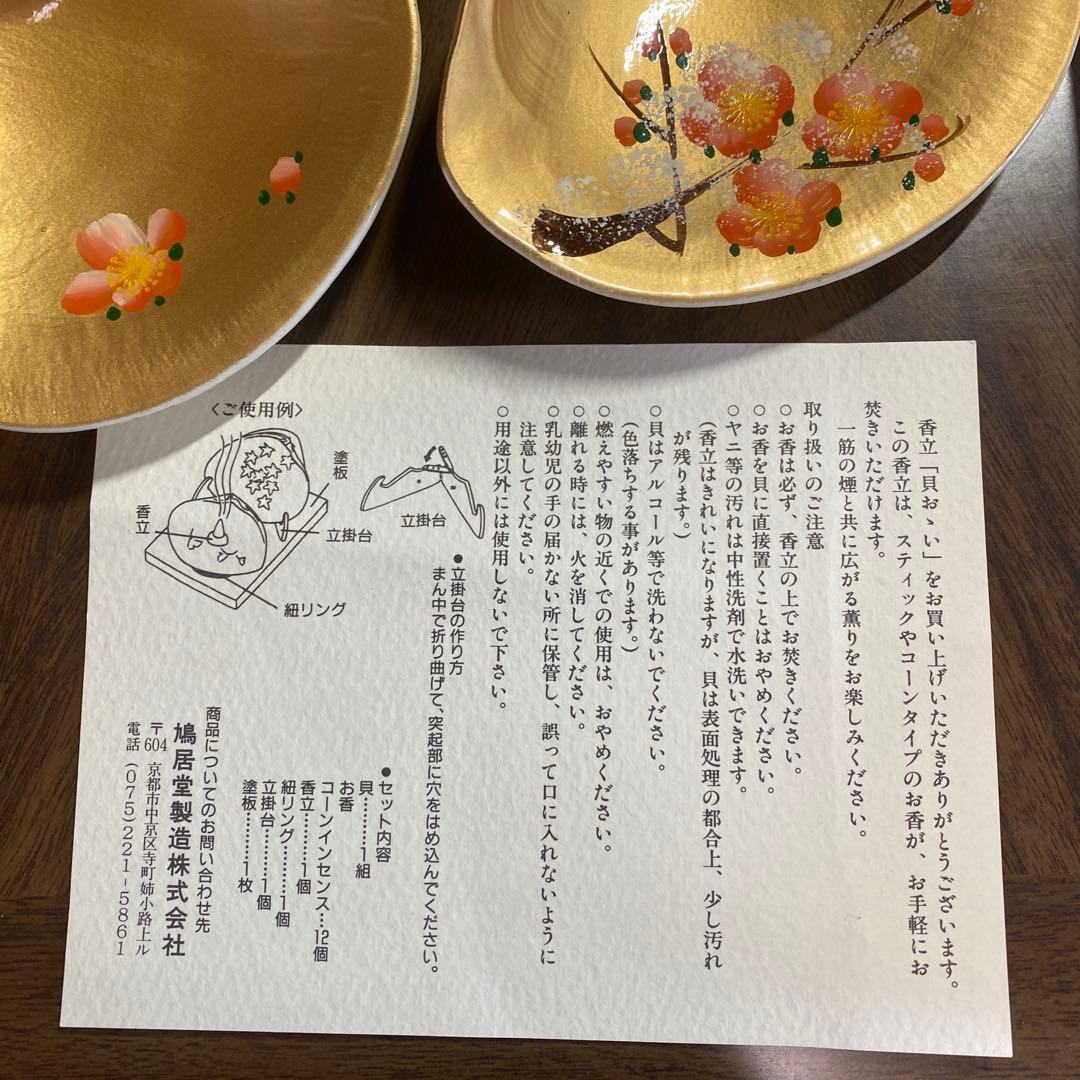 香立「貝おゝい」をお買い上げいただきありがとうございます。
この香立は、スティックやコーンタイプのお香が、お手軽にお
焚きいただけます。
一筋の煙と共に広がる薫りをお楽しみください。
取り扱いのご注意
○お香は必ず、香立の上でお焚きください。
○お香を貝に直接置くことはおやめください。
○ヤニ等の汚れは中性洗剤で水洗いできます。
(香立はきれいになりますが、貝は表面処理の都合上、少し汚れ
が残ります。)
○貝はアルコール等で洗わないでください。
(色落ちする事があります。)
○燃えやすい物の近くでの使用は、おやめください。
○離れる時には、火を消してください。
○乳幼児の手の届かない所に保管し、誤って口に入れないように
注意してください。
○用途以外には使用しないで下さい。
●立掛台の作り方
まん中で折り曲げて、突起部に穴をはめ込んでください。
立掛台
〈ご使用例〉
塗板
香立
立掛台
紐リング
●セット内容
貝…………1組
お香
コーンインセンス…12個
香立…………1個
紐リング………1個
立掛台…………1個
塗板…………1枚
商品についてのお問い合わせ先
鳩居堂製造株式会社
〒604 京都市中京区寺町姉小路上ル
電話(075)221-5861